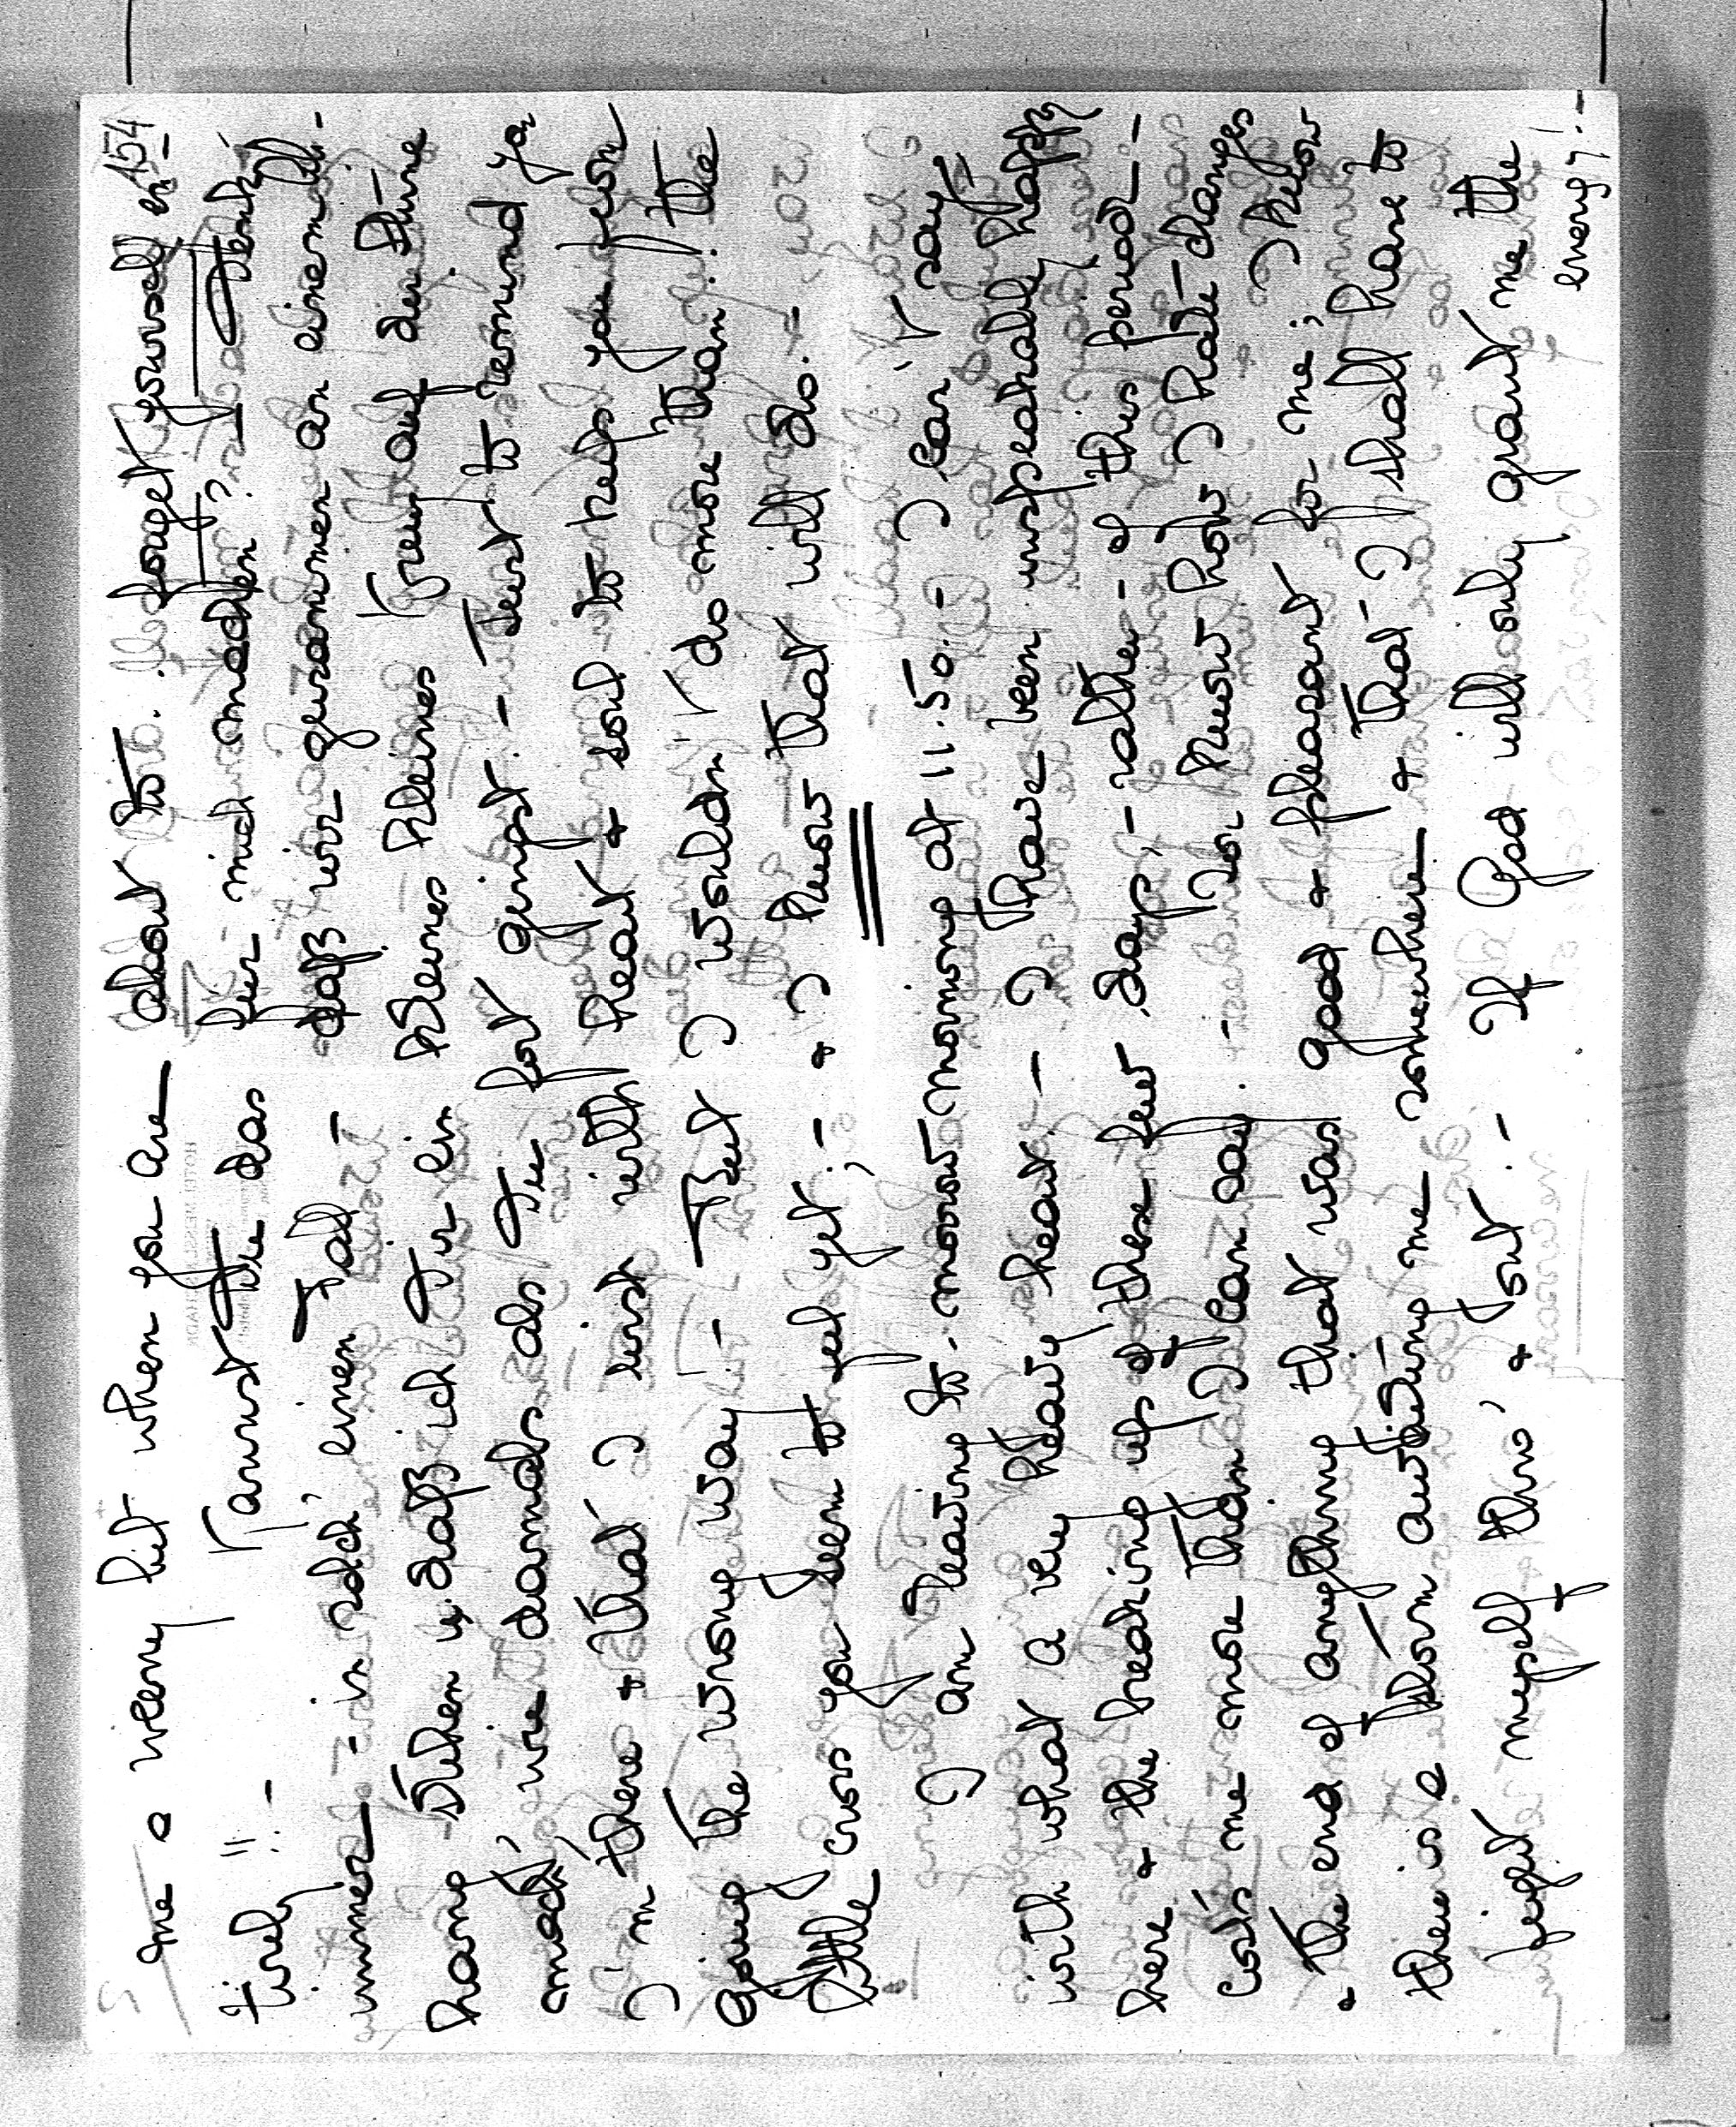 454
me a weeny bit when you are about to forget yourself en-
tirely!! - Kannst Du das für mich machen? - Denk'
immer - in solch' einem Fall - daß wir zusammen an einem Ab-
hang stehen u. daß ich Dir ein kleines kleines Kreuz auf die Stirne
mach', wie damals als Du fort gingst. - Just to remind you
I'm there & that I wish with heart & soul to help you from
going the wrong way! - But I wouldn't do more than the
little cross you seem to feel yet; - & I know that will do. -
I am leaving to-morrow morning at 11.50. - I can't say
with what a very heavy heart - I have been unspeakably happy
here & the breaking up of these few days, - rather - of this period -
costs me more than I can say. - I don't know how I hate changes
& the end of anything that was good & pleasant for me; I know
there is a storm awaiting me somewhere & that I shall have to
fight myself thro' & out! - If God will only grant me the
energy! -